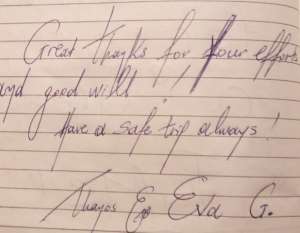 Great thanks for your efforts
and good will!
Have a safe trip always!
Thayos Eva G.